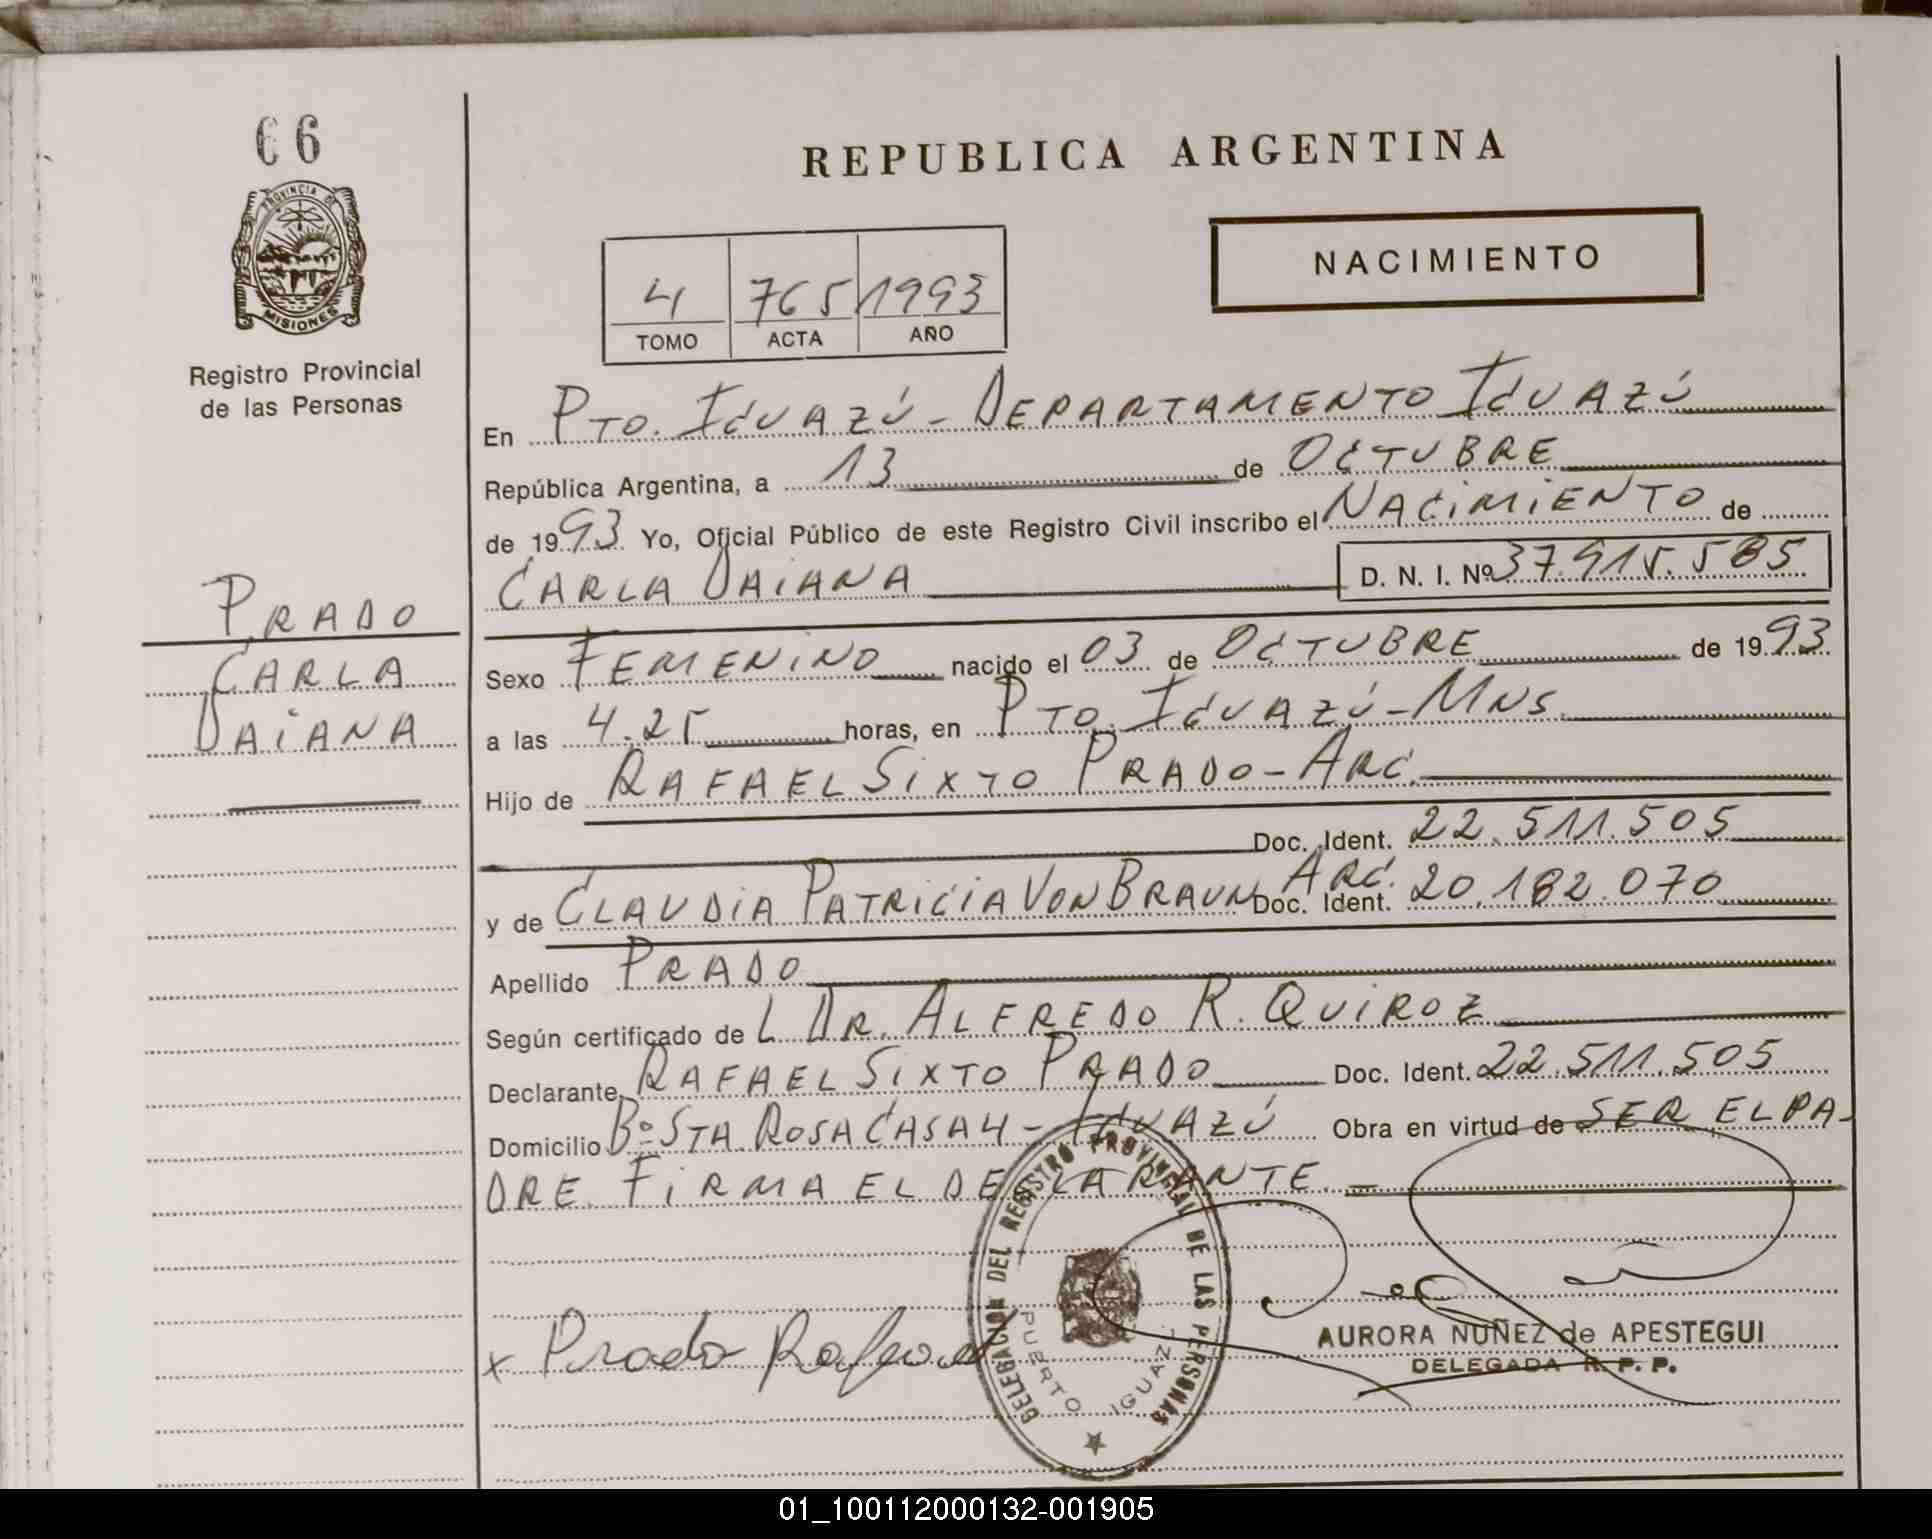 66
PROVINCIA DE
MISIONES
Registro Provincial
de las Personas
PRADO
CARLA
DAIANA
REPUBLICA ARGENTINA
NACIMIENTO
4 765 1993
TOMO ACTA AÑO
En PTO. IGUAZÚ - DEPARTAMENTO IGUAZÚ
República Argentina, a 13 de OCTUBRE
de 1993 Yo, Oficial Público de este Registro Civil inscribo el NACIMIENTO de
CARLA DAIANA D. N. I. Nº 37.915.585
Sexo FEMENINO nacido el 03 de OCTUBRE de 1993
a las 4.25 horas, en PTO. IGUAZÚ - MNS.
Hijo de RAFAEL SIXTO PRADO - ARG.
Doc. Ident. 22.511.505
y de CLAUDIA PATRICIA VON BRAUN ARG. Doc. Ident. 20.182.070
Apellido PRADO
Según certificado de L DR. ALFREDO R. QUIROZ
Declarante RAFAEL SIXTO PRADO Doc. Ident. 22.511.505
Domicilio Bº STA. ROSA CASA 4 - IGUAZÚ Obra en virtud de SER EL PA-
DRE. FIRMA EL DECLARANTE. -
x Prado Rafael
DELEGACION DEL REGISTRO PROVINCIAL DE LAS PERSONAS
PUERTO IGUAZU
AURORA NUÑEZ de APESTEGUI
DELEGADA R. P. P.
01_100112000132-001905